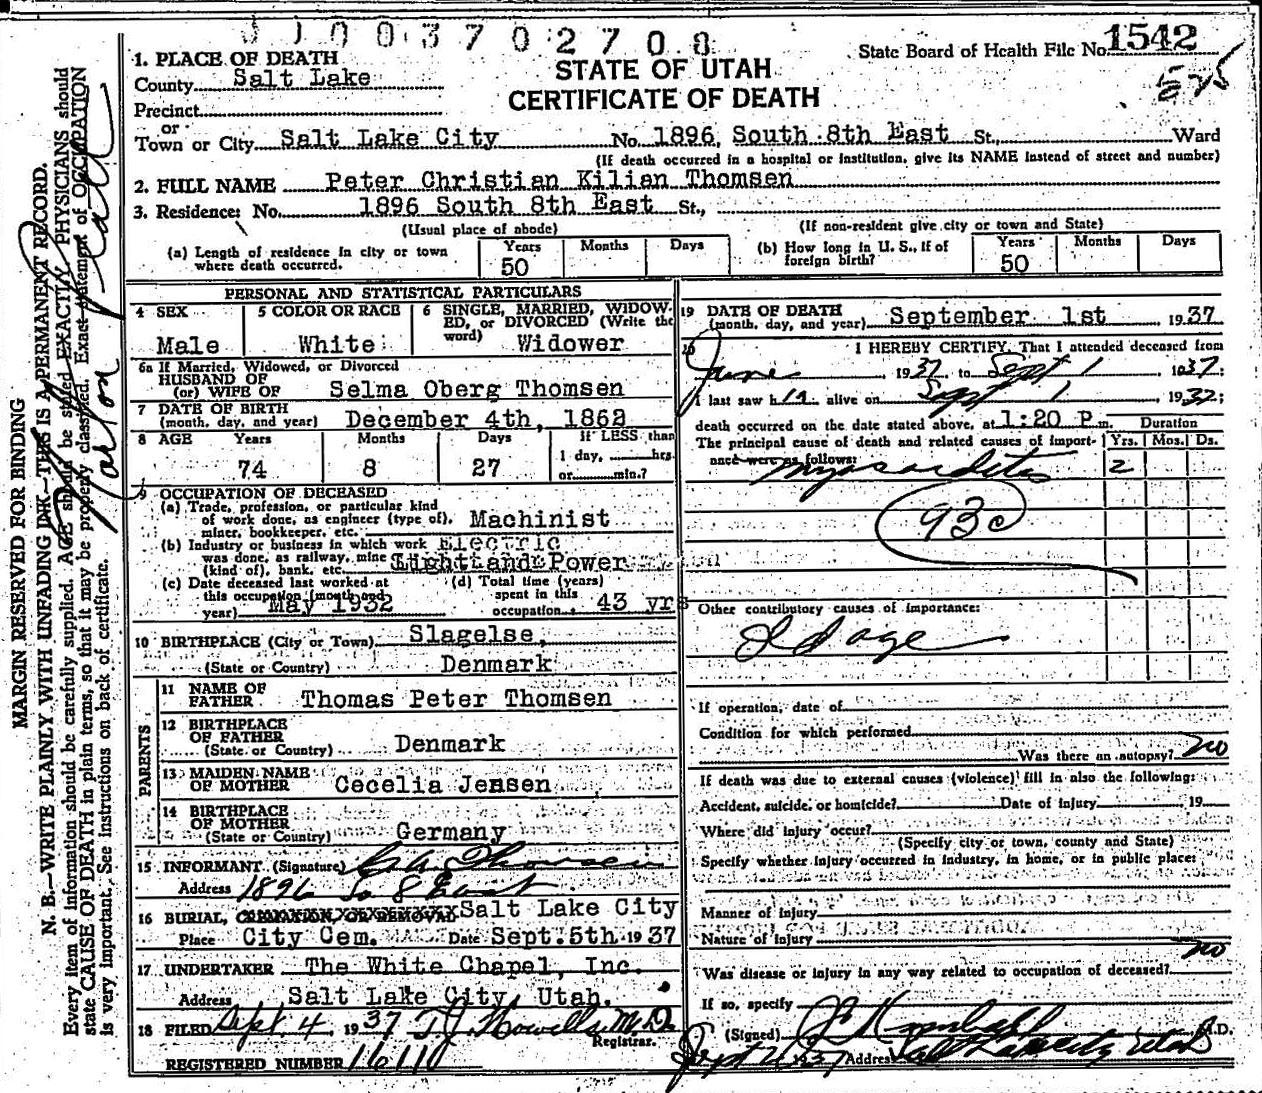 1003702708
State Board of Health File No. 1542
525
1. PLACE OF DEATH
STATE OF UTAH
County Salt Lake
CERTIFICATE OF DEATH
Precinct
or
Town or City Salt Lake City No. 1896 South 8th East St., Ward
(If death occurred in a hospital or institution, give its NAME instead of street and number)
2. FULL NAME Peter Christian Kilian Thomsen
3. Residence: No. 1896 South 8th East St.,
(Usual place of abode) (If non-resident give city or town and State)
(a) Length of residence in city or town where death occurred. Years 50 Months Days
(b) How long in U. S., if of foreign birth? Years 50 Months Days
PERSONAL AND STATISTICAL PARTICULARS
4 SEX Male
5 COLOR OR RACE White
6 SINGLE, MARRIED, WIDOW-
ED, or DIVORCED (Write the
word) Widower
6a If Married, Widowed, or Divorced
HUSBAND OF
(or) WIFE OF Selma Oberg Thomsen
7 DATE OF BIRTH
(month, day, and year) December 4th, 1862
8 AGE Years 74 Months 8 Days 27 If LESS than
1 day, hrs.
or min.?
9 OCCUPATION OF DECEASED
(a) Trade, profession, or particular kind
of work done, as engineer (type of),
miner, bookkeeper, etc. Machinist
(b) Industry or business in which work
was done, as railway, mine
(kind of), bank, etc. Electric
Light and Power
(c) Date deceased last worked at
this occupation (month and
year) May 1932
(d) Total time (years)
spent in this
occupation 43 yrs
10 BIRTHPLACE (City or Town) Slagelse,
(State or Country) Denmark
PARENTS
11 NAME OF
FATHER Thomas Peter Thomsen
12 BIRTHPLACE
OF FATHER
(State or Country) Denmark
13 MAIDEN NAME
OF MOTHER Cecelia Jensen
14 BIRTHPLACE
OF MOTHER
(State or Country) Germany
15 INFORMANT (Signature) Thomsen
Address 1896 So 8 East
16 BURIAL, CREMATION, OR REMOVAL Salt Lake City
Place City Cem. Date Sept. 5th 1937
17 UNDERTAKER The White Chapel, Inc.
Address Salt Lake City, Utah.
18 FILED Sept. 4, 1937 T J Howells M.D.
Registrar.
REGISTERED NUMBER 1611
19 DATE OF DEATH
(month, day, and year) September 1st 1937
20 I HEREBY CERTIFY, That I attended deceased from
June 1937, to Sept 1, 1937;
I last saw him alive on Sept 1, 1937;
death occurred on the date stated above, at 1:20 P m. Duration
The principal cause of death and related causes of import- Yrs. Mos. Ds.
ance were as follows: myocarditis 2
93c
Other contributory causes of importance:
Old age
If operation, date of
Condition for which performed
Was there an autopsy? no
If death was due to external causes (violence) fill in also the following:
Accident, suicide, or homicide? Date of injury 19
Where did injury occur?
(Specify city or town, county and State)
Specify whether injury occurred in industry, in home, or in public place:
Manner of injury
Nature of injury
Was disease or injury in any way related to occupation of deceased? no
If so, specify
(Signed) Kimball M.D.
Sept 1937 Address Salt Lake City Utah
MARGIN RESERVED FOR BINDING
N. B.—WRITE PLAINLY WITH UNFADING INK—THIS IS A PERMANENT RECORD.
Every item of information should be carefully supplied. AGE should be stated EXACTLY. PHYSICIANS should
state CAUSE OF DEATH in plain terms, so that it may be properly classified. Exact statement of OCCUPATION
is very important. See instructions on back of certificate.